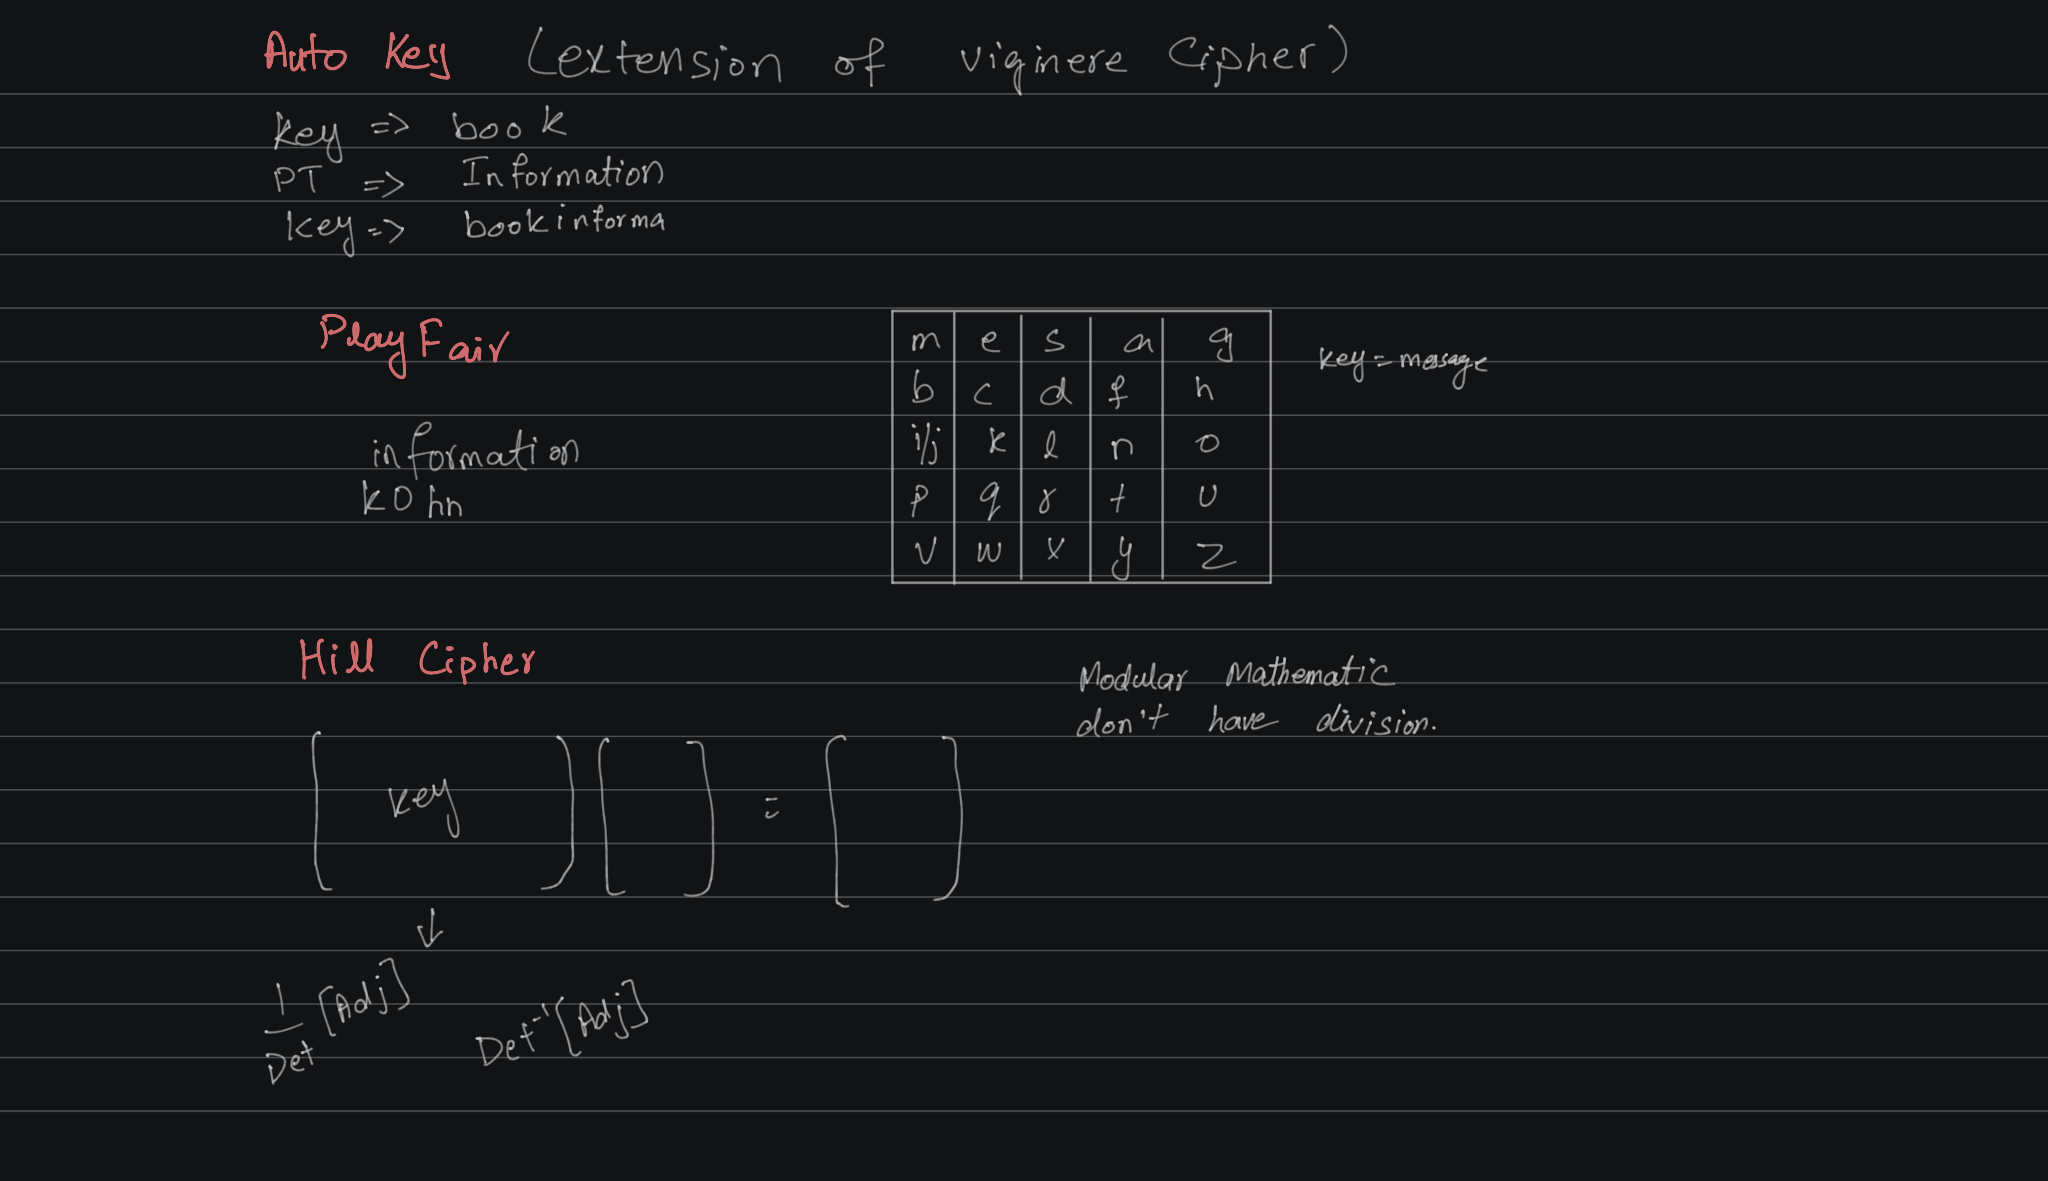 Auto Key (extension of viginere Cipher)
key => book
PT => Information
key => bookinforma
PlayFair
m e s a g
b c d f h
i/j k l n o
p q r t u
v w x y z
key = message
information
kohn
Hill Cipher
Modular Mathematic
don't have division.
[ key ] [ ] = [ ]
↓
1/Det [Adj]
Det⁻¹ [Adj]